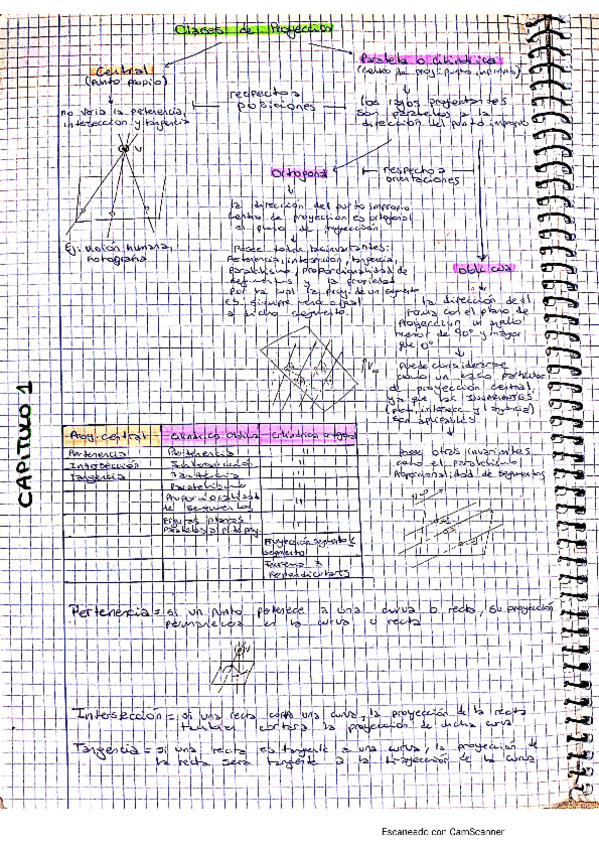 Clases de Proyección
Central
(Punto propio)
Paralela o Cilíndrica
(centro de proy. punto impropio)
respecto a
posiciones
no varía la pertenencia,
intersección y tangencia
los rayos proyectantes
son paralelos a la
dirección del punto impropio
Ej: visión humana,
fotografía
Ortogonal
respecto a
orientaciones
la dirección del punto impropio
centro de proyección es ortogonal
al plano de proyección
Posee todas las invariantes:
Pertenencia, intersección, tangencia,
paralelismo, proporcionalidad de
segmentos y la propiedad
por la cual la proy. de un segmento
es siempre menor o igual
a dicho segmento
Oblicua
la dirección de él
forma con el plano de
proyección un ángulo
menor de 90º y mayor
que 0º
puede considerarse
como un caso particular
de proyección central
ya que las INVARIANTES
(pert, intersec y tangencia)
son aplicables
Posee otras invariantes
como el paralelismo
proporcionalidad de segmentos
CAPITULO 1
Proy. central
Cilíndrica oblicua
Cilíndrica ortogonal
Pertenencia
Pertenencia
Intersección
Intersección
Tangencia
Tangencia
Paralelismo
Proporcionalidad
de segmentos
Figuras planas
Paralelas al pl de proy.
Proyección segmento ≤
segmento
Teorema 3
Perpendiculares
Pertenencia = si un punto pertenece a una curva o recta, su proyección
permanecerá en la curva o recta
Intersección = si una recta corta una curva, la proyección de la recta
también cortará la proyección de dicha curva
Tangencia = si una recta es tangente a una curva, la proyección de
la recta será tangente a la proyección de la curva
Escaneado con CamScanner